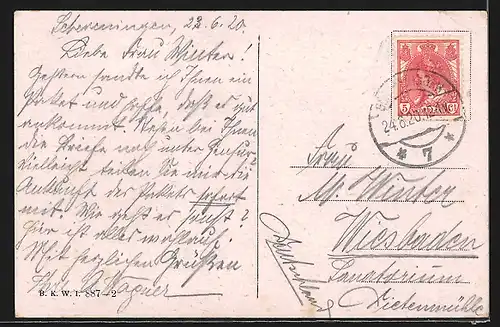 Scheveningen, 22.6.20.
Liebe Frau Winter!
Gestern sandte ich Ihnen ein
Paket und hoffe, daß es gut
ankommt. Stehen bei Ihnen
die Briefe noch unter Zensur?
Vielleicht teilen Sie mir die
Ankunft des Pakets sofort
mit. Wie geht es sonst?
Hier ist alles wohlauf.
Mit herzlichen Grüßen
Ihre
B. K. W. I. 887-2
5 Ct
24.6.20.
* 7 *
Frau
M. Winter
Wiesbaden
Sanatorium
Dietenmühle
Deutschland